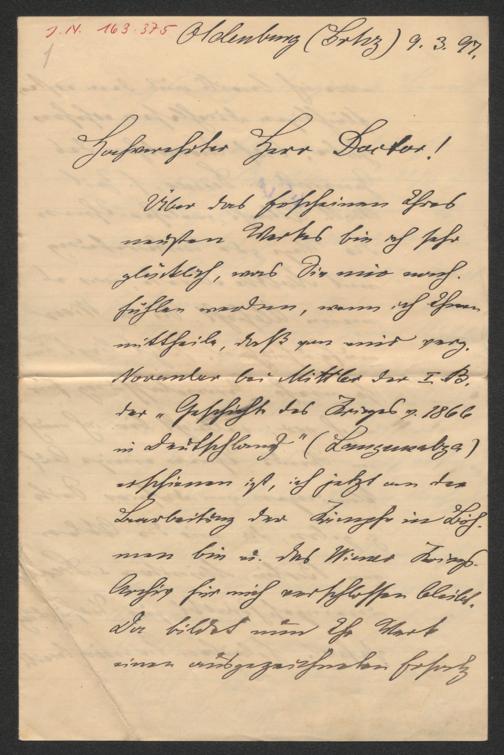 J.N. 163.375
1
Oldenburg (Grhz) 9. 3. 97.
Hochverehrter Herr Doctor!
Über das Erscheinen Ihres
neuesten Werkes bin ich sehr
glücklich, was Sie mir nach-
fühlen werden, wenn ich Ihnen
mittheile, daß von mir verg.
November bei Mittler der I. B.
der „Geschichte des Krieges v. 1866
in Deutschland" (Langensalza)
erschienen ist, ich jetzt an der
Bearbeitung der Kämpfe in Böh-
men bin u. das Wiener Kriegs-
Archiv für mich verschlossen bleibt.
Da bildet nun Ihr Werk
einen ausgezeichneten Ersatz